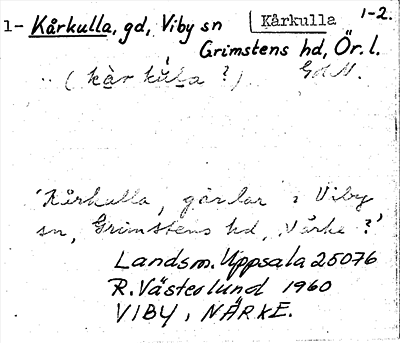 1- Kårkulla, gd, Viby sn
Kårkulla
1-2.
Grimstens hd, Ör. l.
(kår kulla ?)
'Kårkulla, gårdar i Viby
sn, Grimstens hd, Närke ?'
Landsm. Uppsala 25076
R. Västerlund 1960
VIBY, NÄRKE.